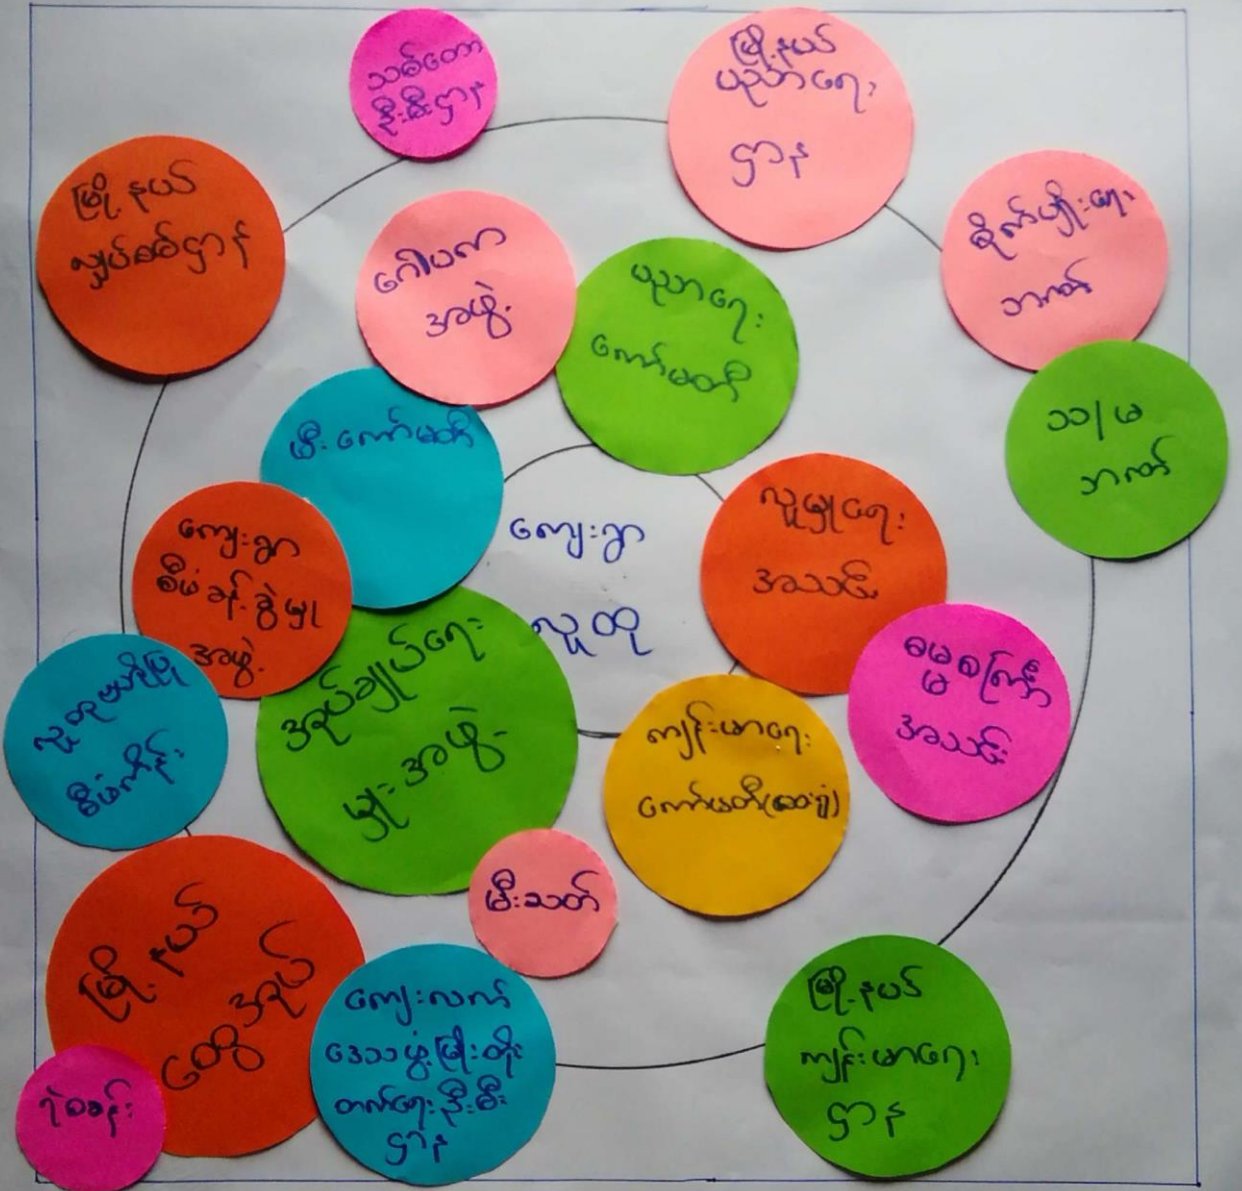 သစ်တော
ဦးစီးဌာန
မြို့နယ်
ပညာရေး
ဌာန
မြို့နယ်
လျှပ်စစ်ဌာန
စိုက်ပျိုးရေး
ဘဏ်
ဂေါပက
အဖွဲ့
ပညာရေး
ကော်မတီ
သ/မ
ဘဏ်
မီးကော်မတီ
ကျေးရွာ
စီမံခန့်ခွဲမှု
အဖွဲ့
ကျေးရွာ
လူထု
လူမှုရေး
အသင်း
ဓမ္မစကြာ
အသင်း
လူထုဗဟိုပြု
စီမံကိန်း
အုပ်ချုပ်ရေး
မှူးအဖွဲ့
ကျန်းမာရေး
ကော်မတီ(ဆေးရုံ)
မီးသတ်
မြို့နယ်
ထွေအုပ်
ရဲစခန်း
ကျေးလက်
ဒေသဖွံ့ဖြိုးတိုး
တက်ရေးဦးစီး
ဌာန
မြို့နယ်
ကျန်းမာရေး
ဌာန